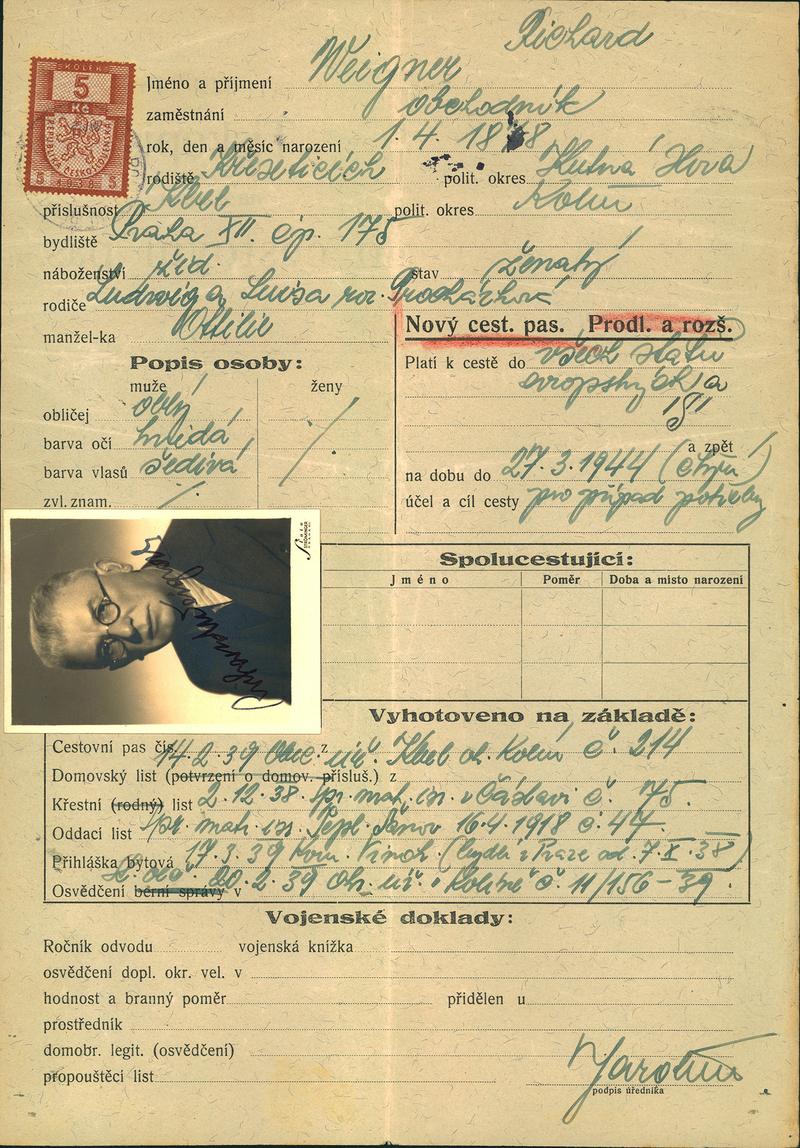 KOLEK
5
Kč
REPUBLIKA ČESKOSLOVENSKÁ
5 1938 5
Richard
Jméno a příjmení Weigner
zaměstnání obchodník
rok, den a měsíc narození 1. 4. 18 8
rodiště Křeseticích polit. okres Kutná Hora
příslušnost Kbel polit. okres Kolín
bydliště Praha XII. čp. 175
náboženství žid. stav ženatý
rodiče Ludwig a Luisa roz. Procházková
manžel-ka Ottilie
Nový cest. pas. Prodl. a rozš.
Popis osoby:
muže ženy
obličej oblý
barva očí hnědá
barva vlasů šedivá
zvl. znam.
Platí k cestě do všech států
evropských a
a zpět
na dobu do 27. 3. 1944 (čtyři)
účel a cíl cesty pro případ potřeby
Foto
Spolucestující:
Jméno Poměr Doba a místo narození
Vyhotoveno na základě:
Cestovní pas čís. z
Domovský list (potvrzení o domov. přísluš.) z 14. 2. 39 Obec. úř. Kbel o. Kolín č. 214
Křestní (rodný) list 2. 12. 38. žpr. mat. isr. v Čáslavi č. 75.
Oddací list 16. 4. 1918 č. 47.
Přihláška bytová 17. 3. 39 kom. Vinoh. (bydlí v Praze od 7. X. 38)
Osvědčení berní správy v 20. 2. 39 Ok. úř. v Kolíně č. 11/156 - 39.
Vojenské doklady:
Ročník odvodu vojenská knížka
osvědčení dopl. okr. vel. v
hodnost a branný poměr přidělen u
prostředník
domobr. legit. (osvědčení)
propouštěcí list
podpis úředníka